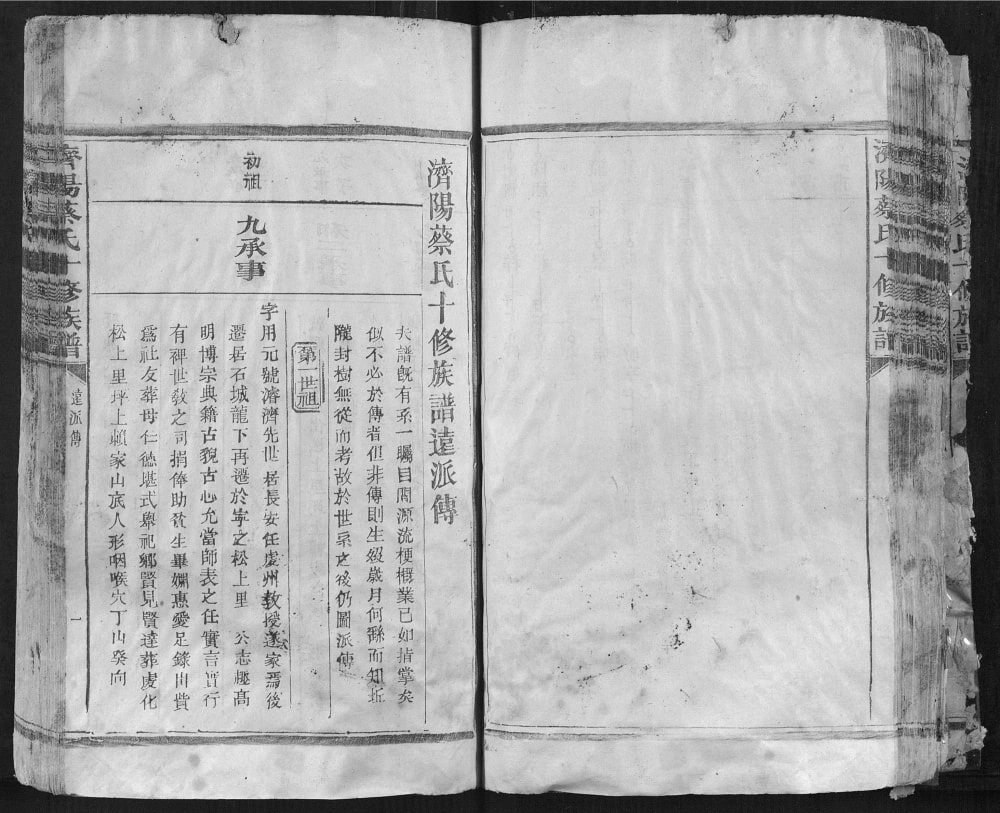 濟陽蔡氏十修族譜
濟陽蔡氏十修族譜遠派傳
夫譜旣有系一矚目間源流梗概業已如指掌矣
似不必於傳者但非傳則生歿歲月何繇而知坵
隴封樹無從而考故於世系之後仍圖派傳
初祖
九承事
第一世祖
字用元號濬濟先世居長安任虔州教授遂家焉後
遷居石城龍下再遷於寧之松上里 公志趣高
明博宗典籍古貌古心允當師表之任實言實行
有裨世敎之司捐俸助貧生畢婣惠愛足錄出貲
爲社友葬母仁德堪式舉祀鄉賢見賢達葬虔化
松上里坪上賴家山底人形咽喉穴丁山癸向
濟陽蔡氏十修族譜
遠派傳
一